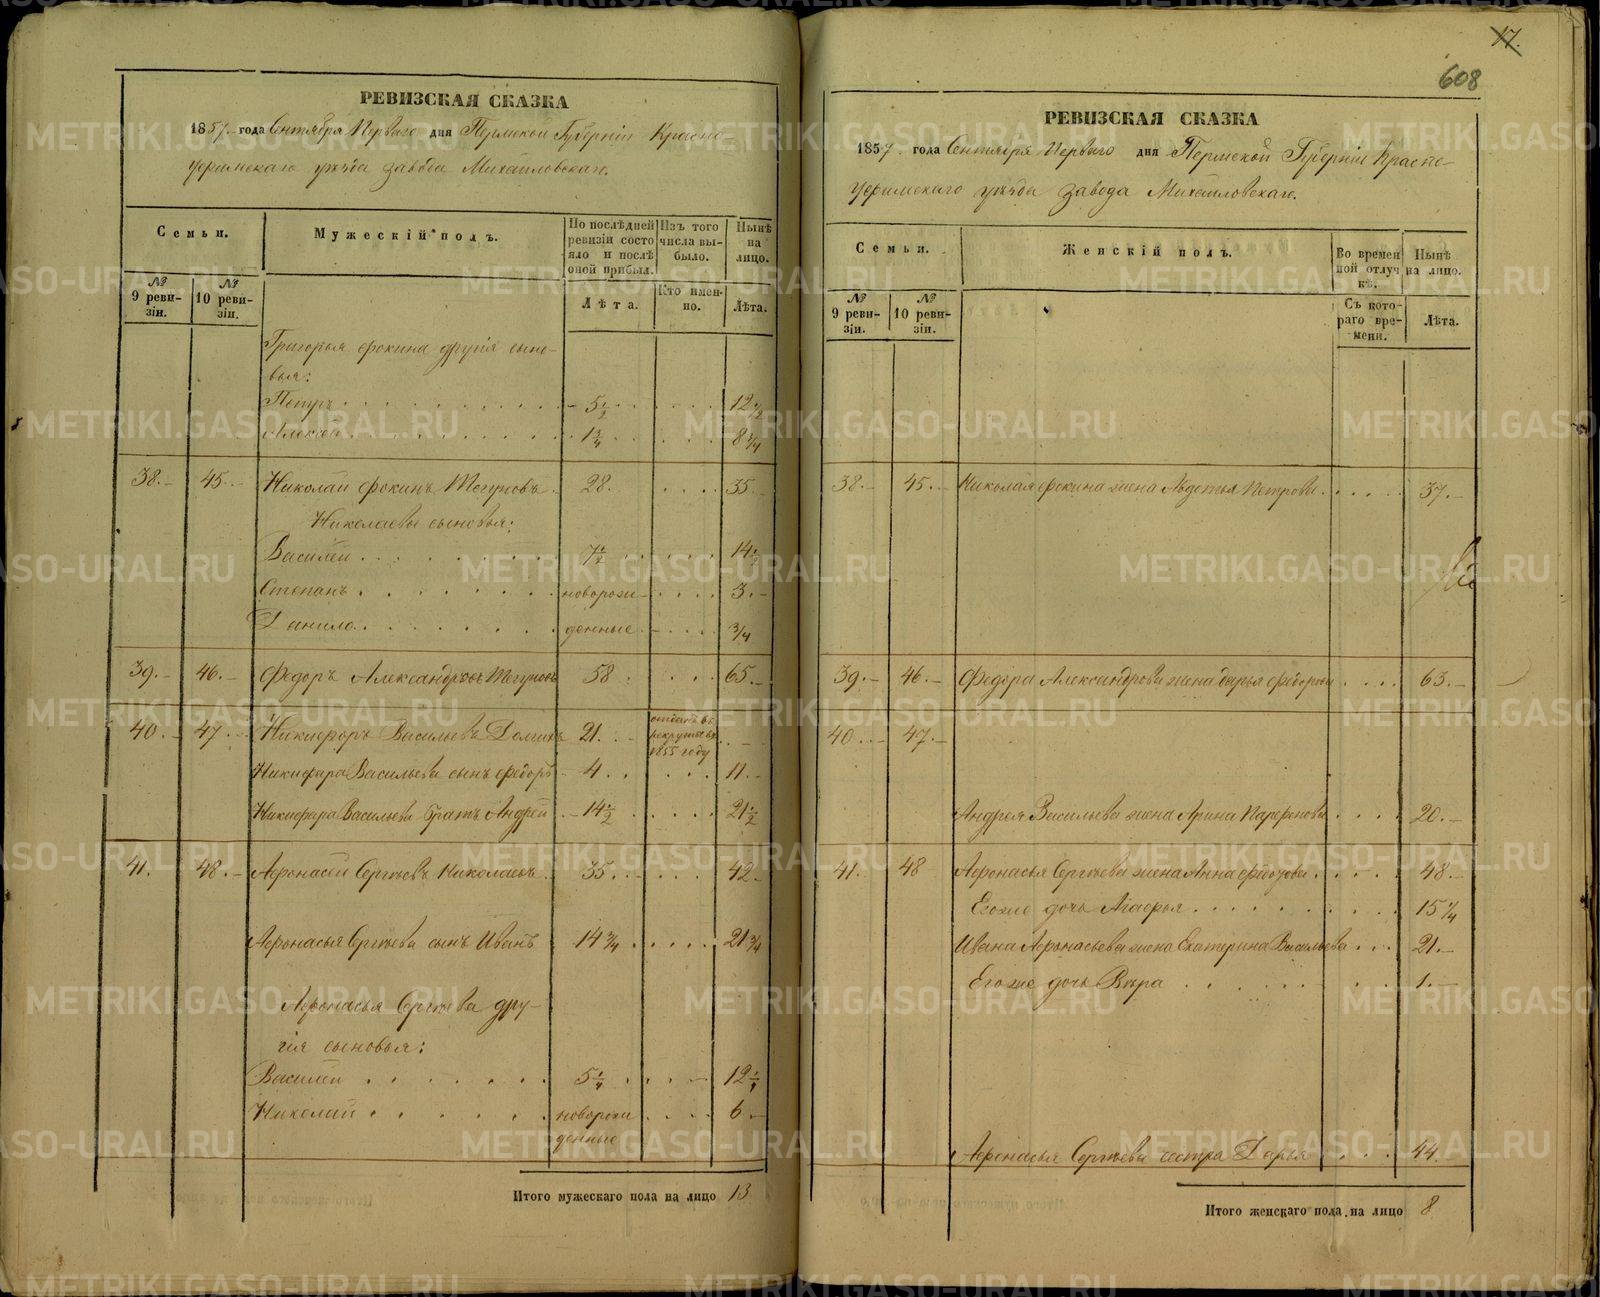 РЕВИЗСКАЯ СКАЗКА
1857 года Сентября Перваго дня Пермской Губерніи Красно-
уфимскаго уѣзда завода Михайловскаго.
Семьи.
Мужескій полъ.
По послѣдней ревизіи состояло и послѣ оной прибыл.
Изъ того числа выбыло.
Нынѣ на лицо.
№ 9 ревизіи.
№ 10 ревизіи.
Лѣта.
Кто именно.
Лѣта.
Григорья Фокина другія сыно-
вья:
Петръ 5 1/2 12 1/2
Алексѣй 1 3/4 8 3/4
38. 45. Николай Фокинъ 28. 35.
Николаевы сыновья:
Василей 7 1/2 14 1/2
Степанъ новорож 3.
Данило денные 3/4
39. 46. Федоръ Александровъ 58 65.
40. 47. Никифоръ Васильевъ Долгихъ 21. отданъ въ рекруты въ 1855 году
Никифора Васильева сынъ Федоръ 4 11.
Никифора Васильева братъ Андрей 14 1/2 21 1/2
41. 48. Афонасей Сергѣевъ Николаевъ 35 42
Афонасья Сергѣева сынъ Иванъ 14 3/4 21 3/4
Афонасья Сергѣева дру-
гія сыновья:
Василей 5 1/4 12 1/4
Николай новорож 6.
денные
Итого мужескаго пола на лицо 13
17.
608
РЕВИЗСКАЯ СКАЗКА
1857 года Сентября Перваго дня Пермской Губерніи Красно-
уфимскаго уѣзда завода Михайловскаго.
Семьи.
Женскій полъ.
Во временной отлучкѣ.
Нынѣ на лицо.
№ 9 ревизіи.
№ 10 ревизіи.
Съ котораго времени.
Лѣта.
38. 45. Николая Фокина жена Авдотья Петрова 37.
39. 46. Федора Александрова жена Дарья Федорова 63.
40. 47.
Андрея Васильева жена Арина Парфенова 20.
41. 48 Афонасья Сергѣева жена Анна Федорова 48.
Егоже дочь Агафья 15 1/4
Ивана Афонасьева жена Екатерина Васильева 21.
Егоже дочь Вѣра 1.
Афонасья Сергѣева сестра Дарья 44.
Итого женскаго пола на лицо 8
METRIKI.GASO-URAL.RU